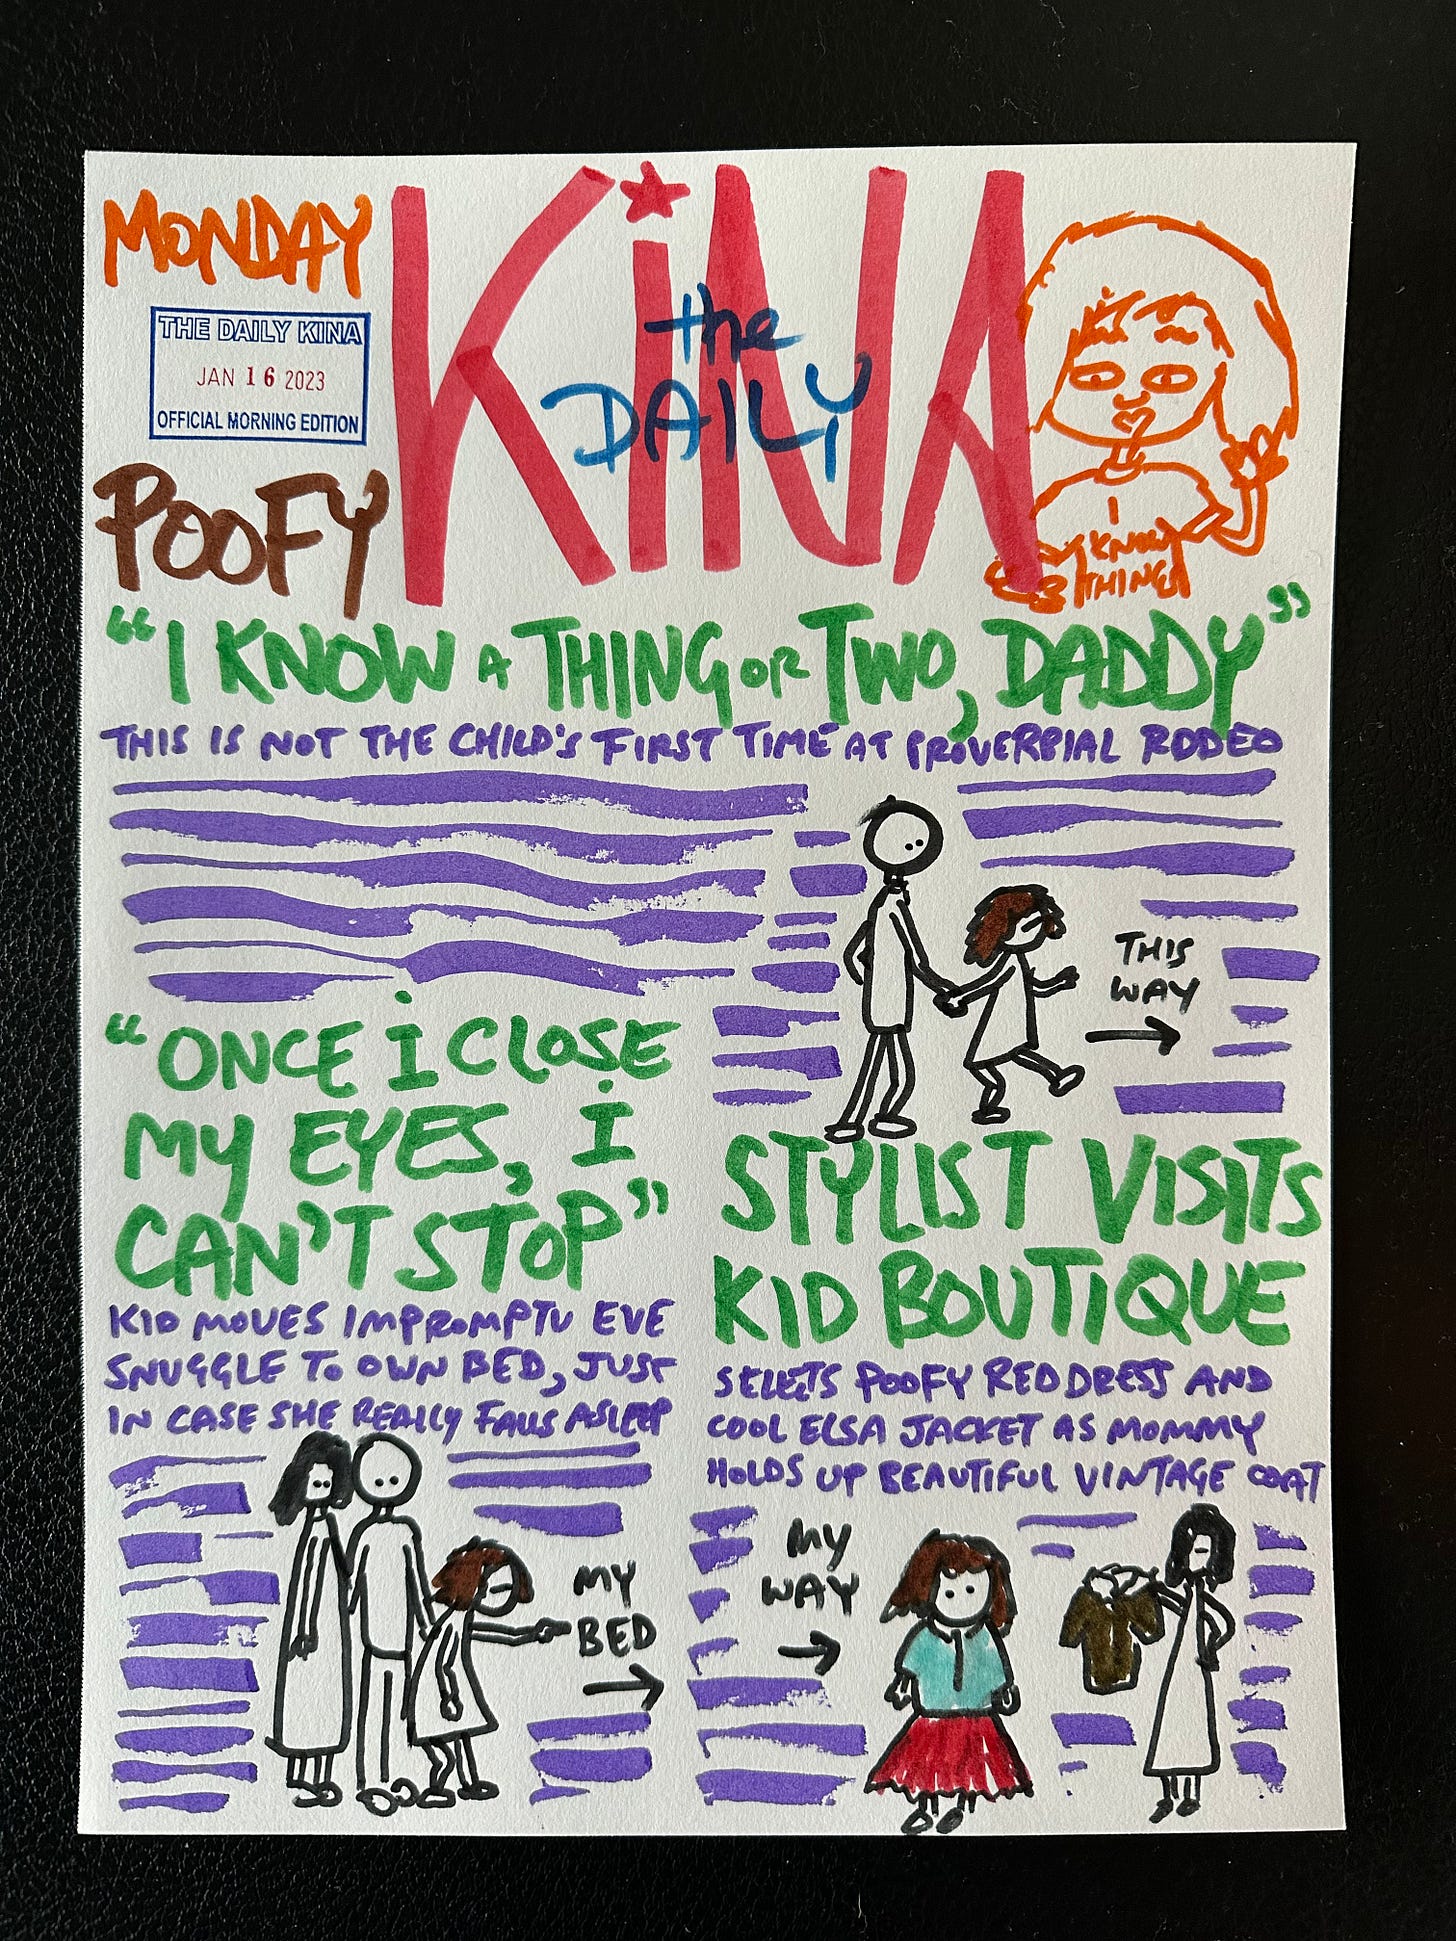 MONDAY
THE DAILY KINA
JAN 16 2023
OFFICIAL MORNING EDITION
POOFY
the
DAILY
KiNA
I
KNOW
THINGS
“I KNOW A THING OR TWO, DADDY”
THIS IS NOT THE CHILD'S FIRST TIME AT PROVERBIAL RODEO
THIS
WAY
“ONCE i CLOSE
MY EYES, i
CAN'T STOP”
KID MOVES IMPROMPTU EVE
SNUGGLE TO OWN BED, JUST
IN CASE SHE REALLY FALLS ASLEEP
MY
BED
STYLIST VISITS
KID BOUTIQUE
SELECTS POOFY RED DRESS AND
COOL ELSA JACKET AS MOMMY
HOLDS UP BEAUTIFUL VINTAGE COAT
MY
WAY